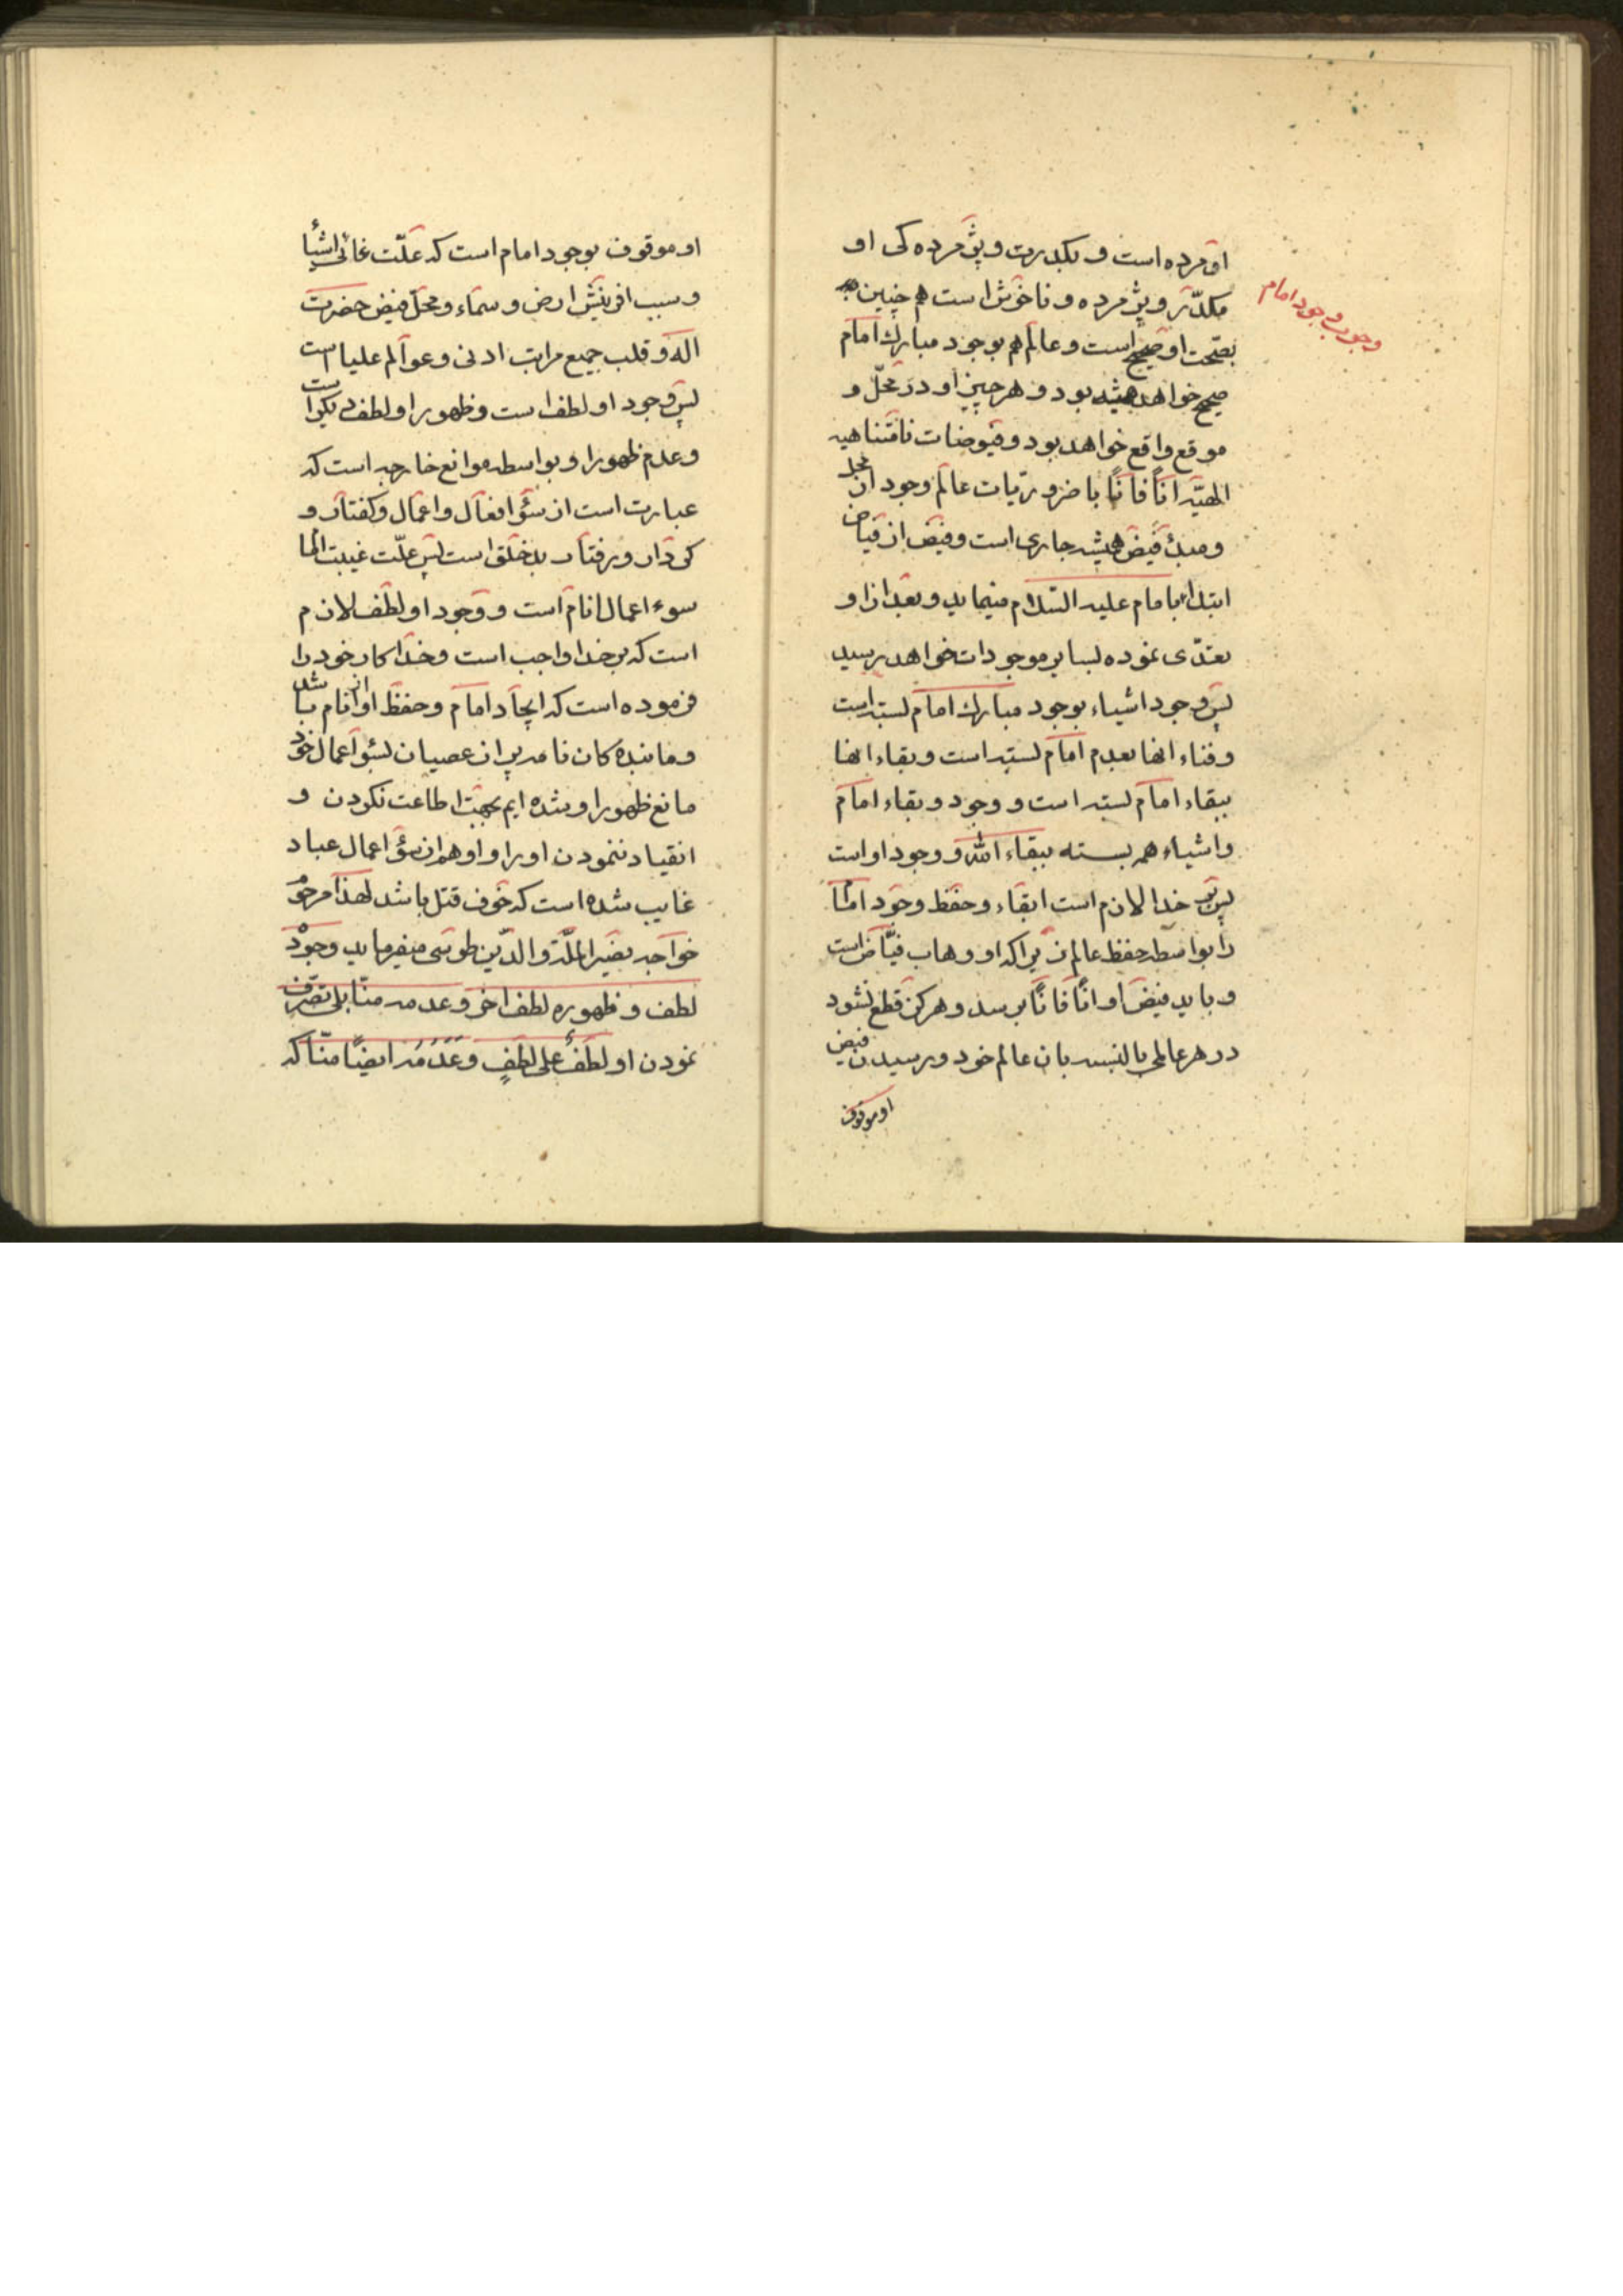 او مرده است و بکدرت و پژمرده کی او
مکدّر و پژمرده و ناخوش است هم چنین
بصحت او صحیح است و عالم هم بوجود مبارك امام
صحیح خواهد همیشه بود و هر چیز او در محلّ و
موقع واقع خواهد بود و فیوضات نامتناهیه
الهیّه اناً فاناً با ضروریات عالم وجود از محل
و مبدأ فیض همیشه جاری است و فیض از فیاض
ابتداء بامام علیه السّلام مینماید و بعد از او
تعدّی نموده بسایر موجودات خواهد رسید
پس وجود اشیاء بوجود مبارك امام بسته است
و فناء انها بعدم امام بسته است و بقاء انها
ببقاء امام بسته است و وجود و بقاء امام
و اشیاء همه بسته ببقاء الله و وجود او است
پس بر خدا لازم است ابقاء و حفظ وجود امام
را بواسطه حفظ عالم زیرا که او وهاب فیّاض است
و باید فیض او اناً فاناً برسد و هرکز قطع نشود
در هر عالمی بالنسبه بان عالم خود و رسیدن فیض
او موقوف
وجوب وجود امام
او موقوف بوجود امام است که علّت غائی اشیأ
و سبب افرینش ارض و سماء و محلّ فیض حضرت
اله و قلب جمیع مراتب ادنی و عوالم علیا است
پس وجود او لطف است و ظهور او لطف دیکر است
و عدم ظهور او بواسطه موانع خارجه است که
عبارت است از سؤ افعال و اعمال و کفتار و
کردار و رفتار بد خلق است پس علّت غیبت انها
سوء اعمال انام است و وجود او لطف لازم
است که بر خدا واجب است و خدا کار خود را
فرموده است که ایجاد امام و حفظ او از انام باشد
و ما بنده کان نامه پر از عصیان بسؤ اعمال خود
مانع ظهور او شده ایم بجهت اطاعت نکردن و
انقیاد ننمودن او را و او هم از سؤ اعمال عباد
غایب شده است که خوف قتل باشد لهذا مرحوم
خواجه نصیر الملّة والدّین طوسی میفرماید وجوده
لطف و ظهوره لطف اخر و عدمه منّا بلی تصرف
نمودن او لطفٌ علی لطفٍ و عَدَمُه ایضاً منّا که